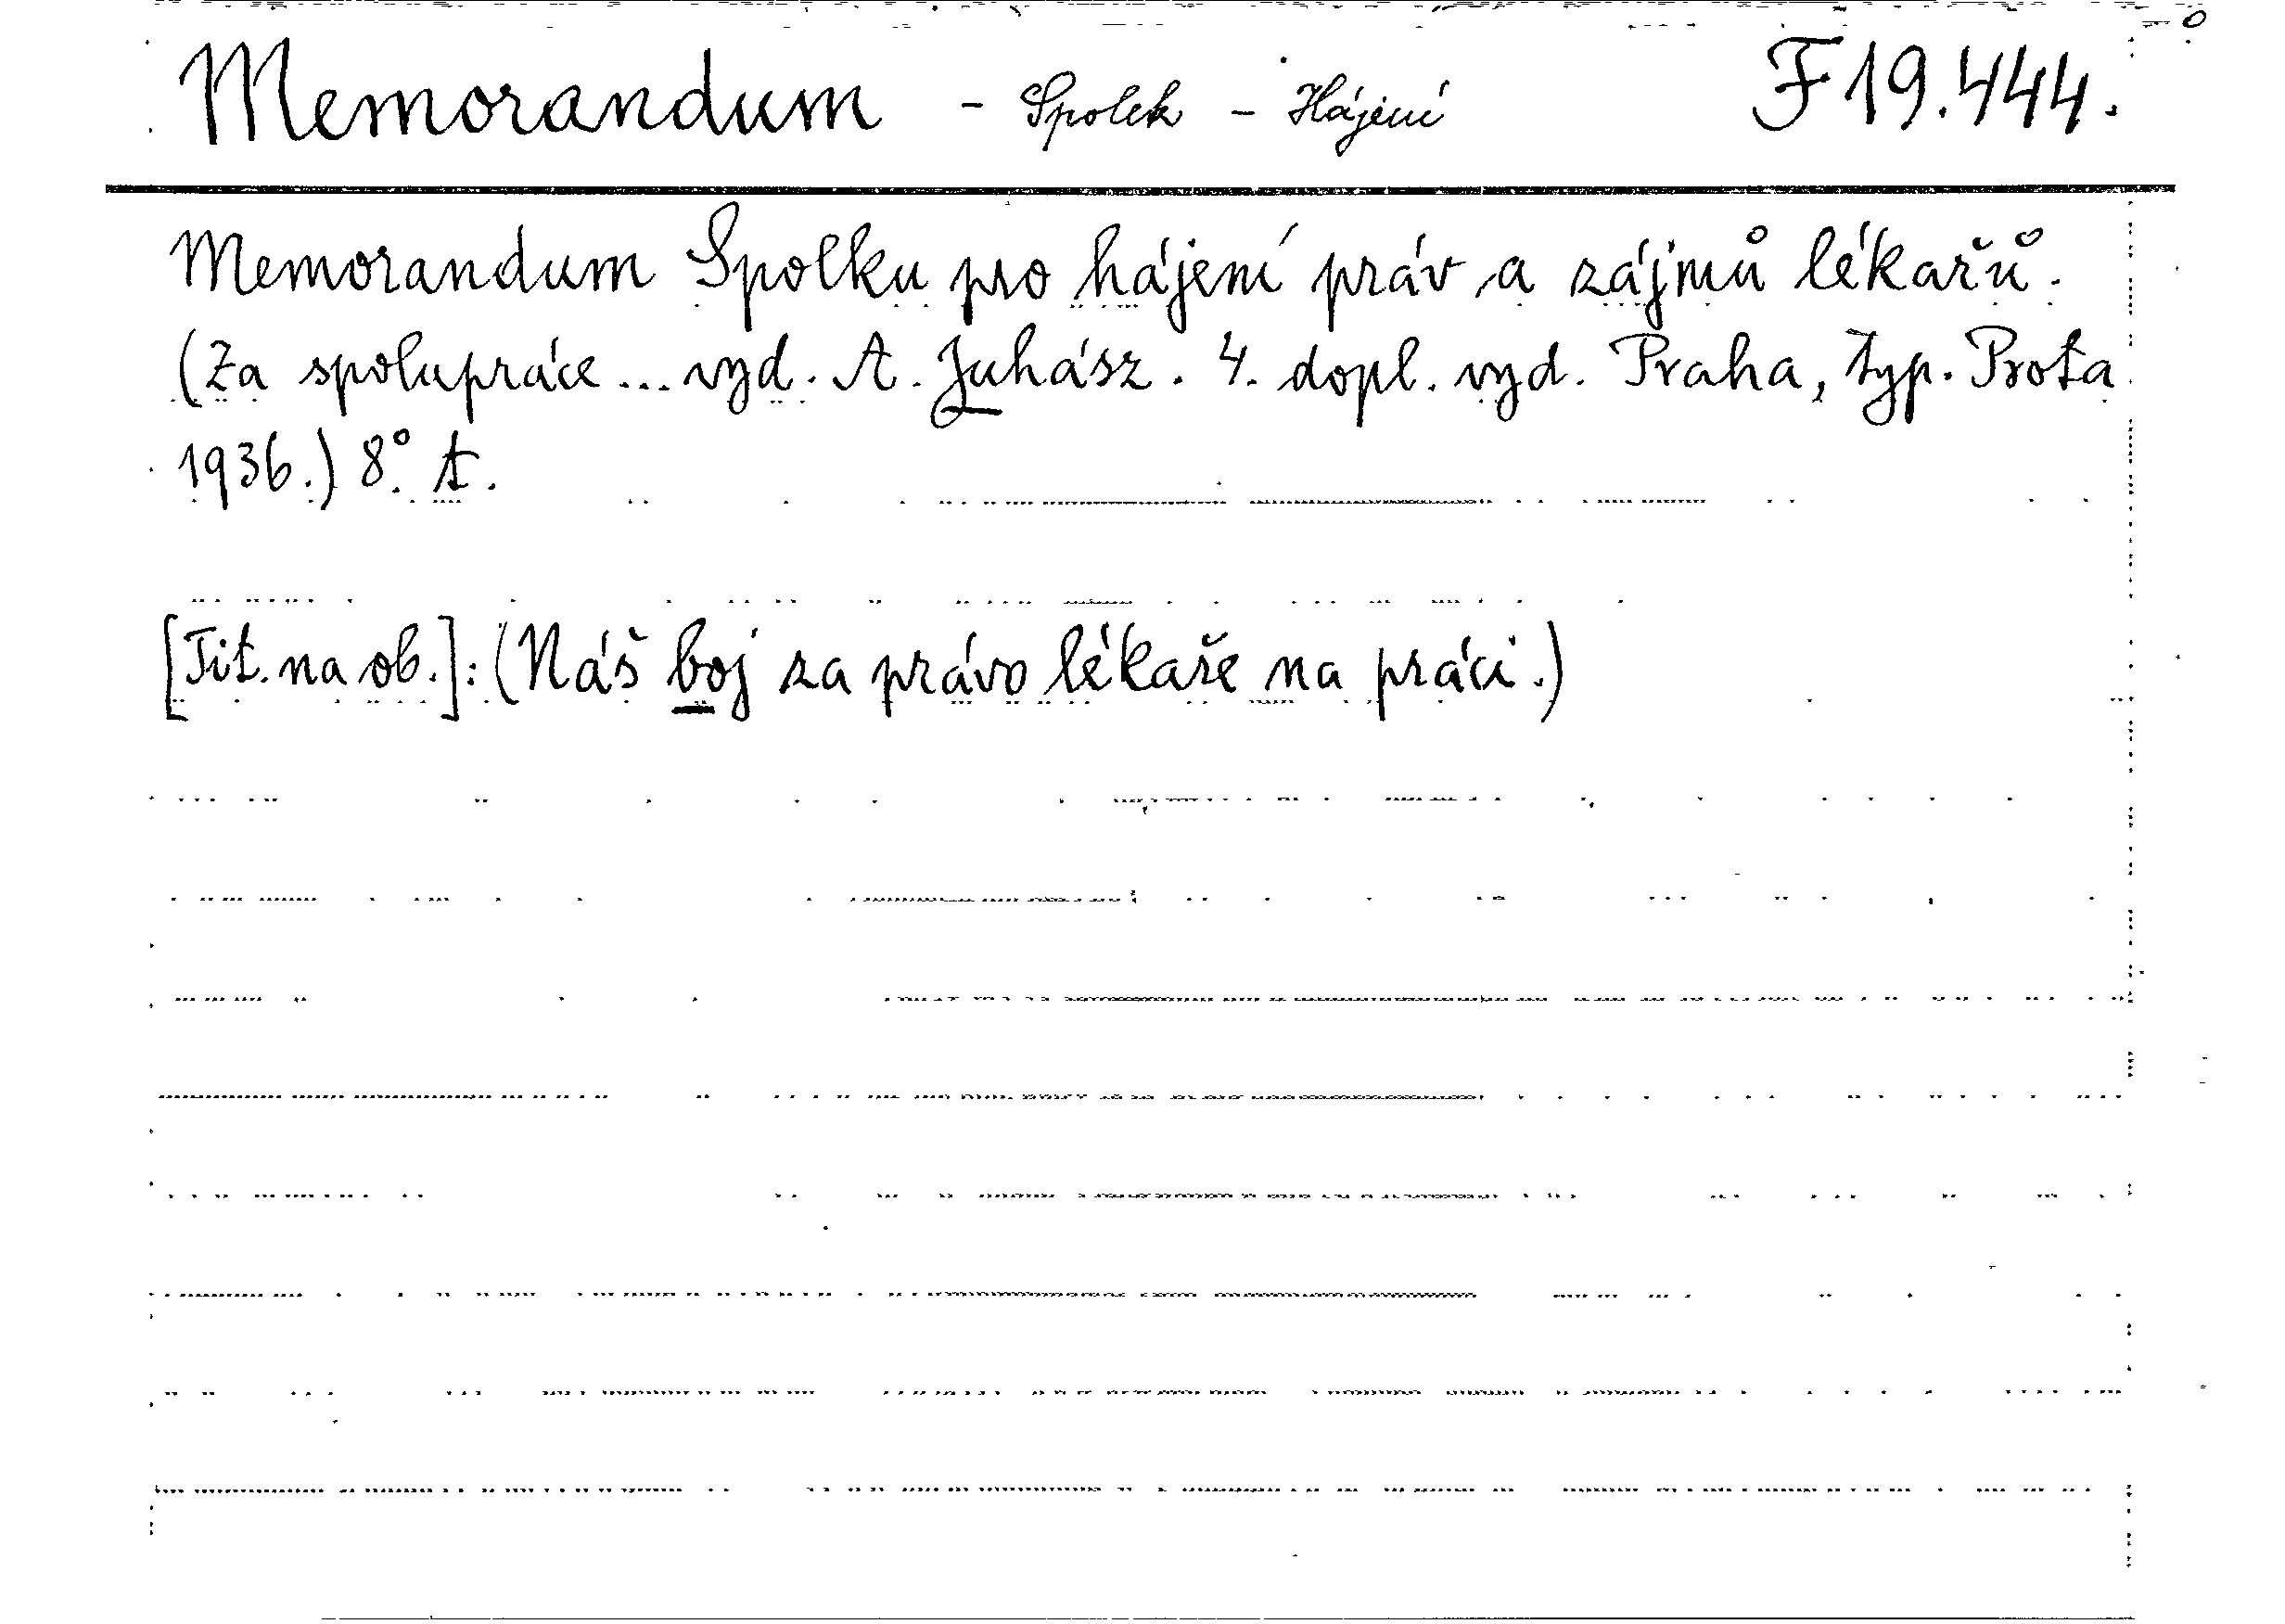 Memorandum - Spolek - Hájení F 19.444.
Memorandum Spolku pro hájení práv a zájmů lékařů.
(Za spolupráce ... vyd. A. Juhász. 4. dopl. vyd. Praha, typ. Prota
1936.) 8°. A.
[Tit. na ob.]: (Náš boj za právo lékaře na práci.)